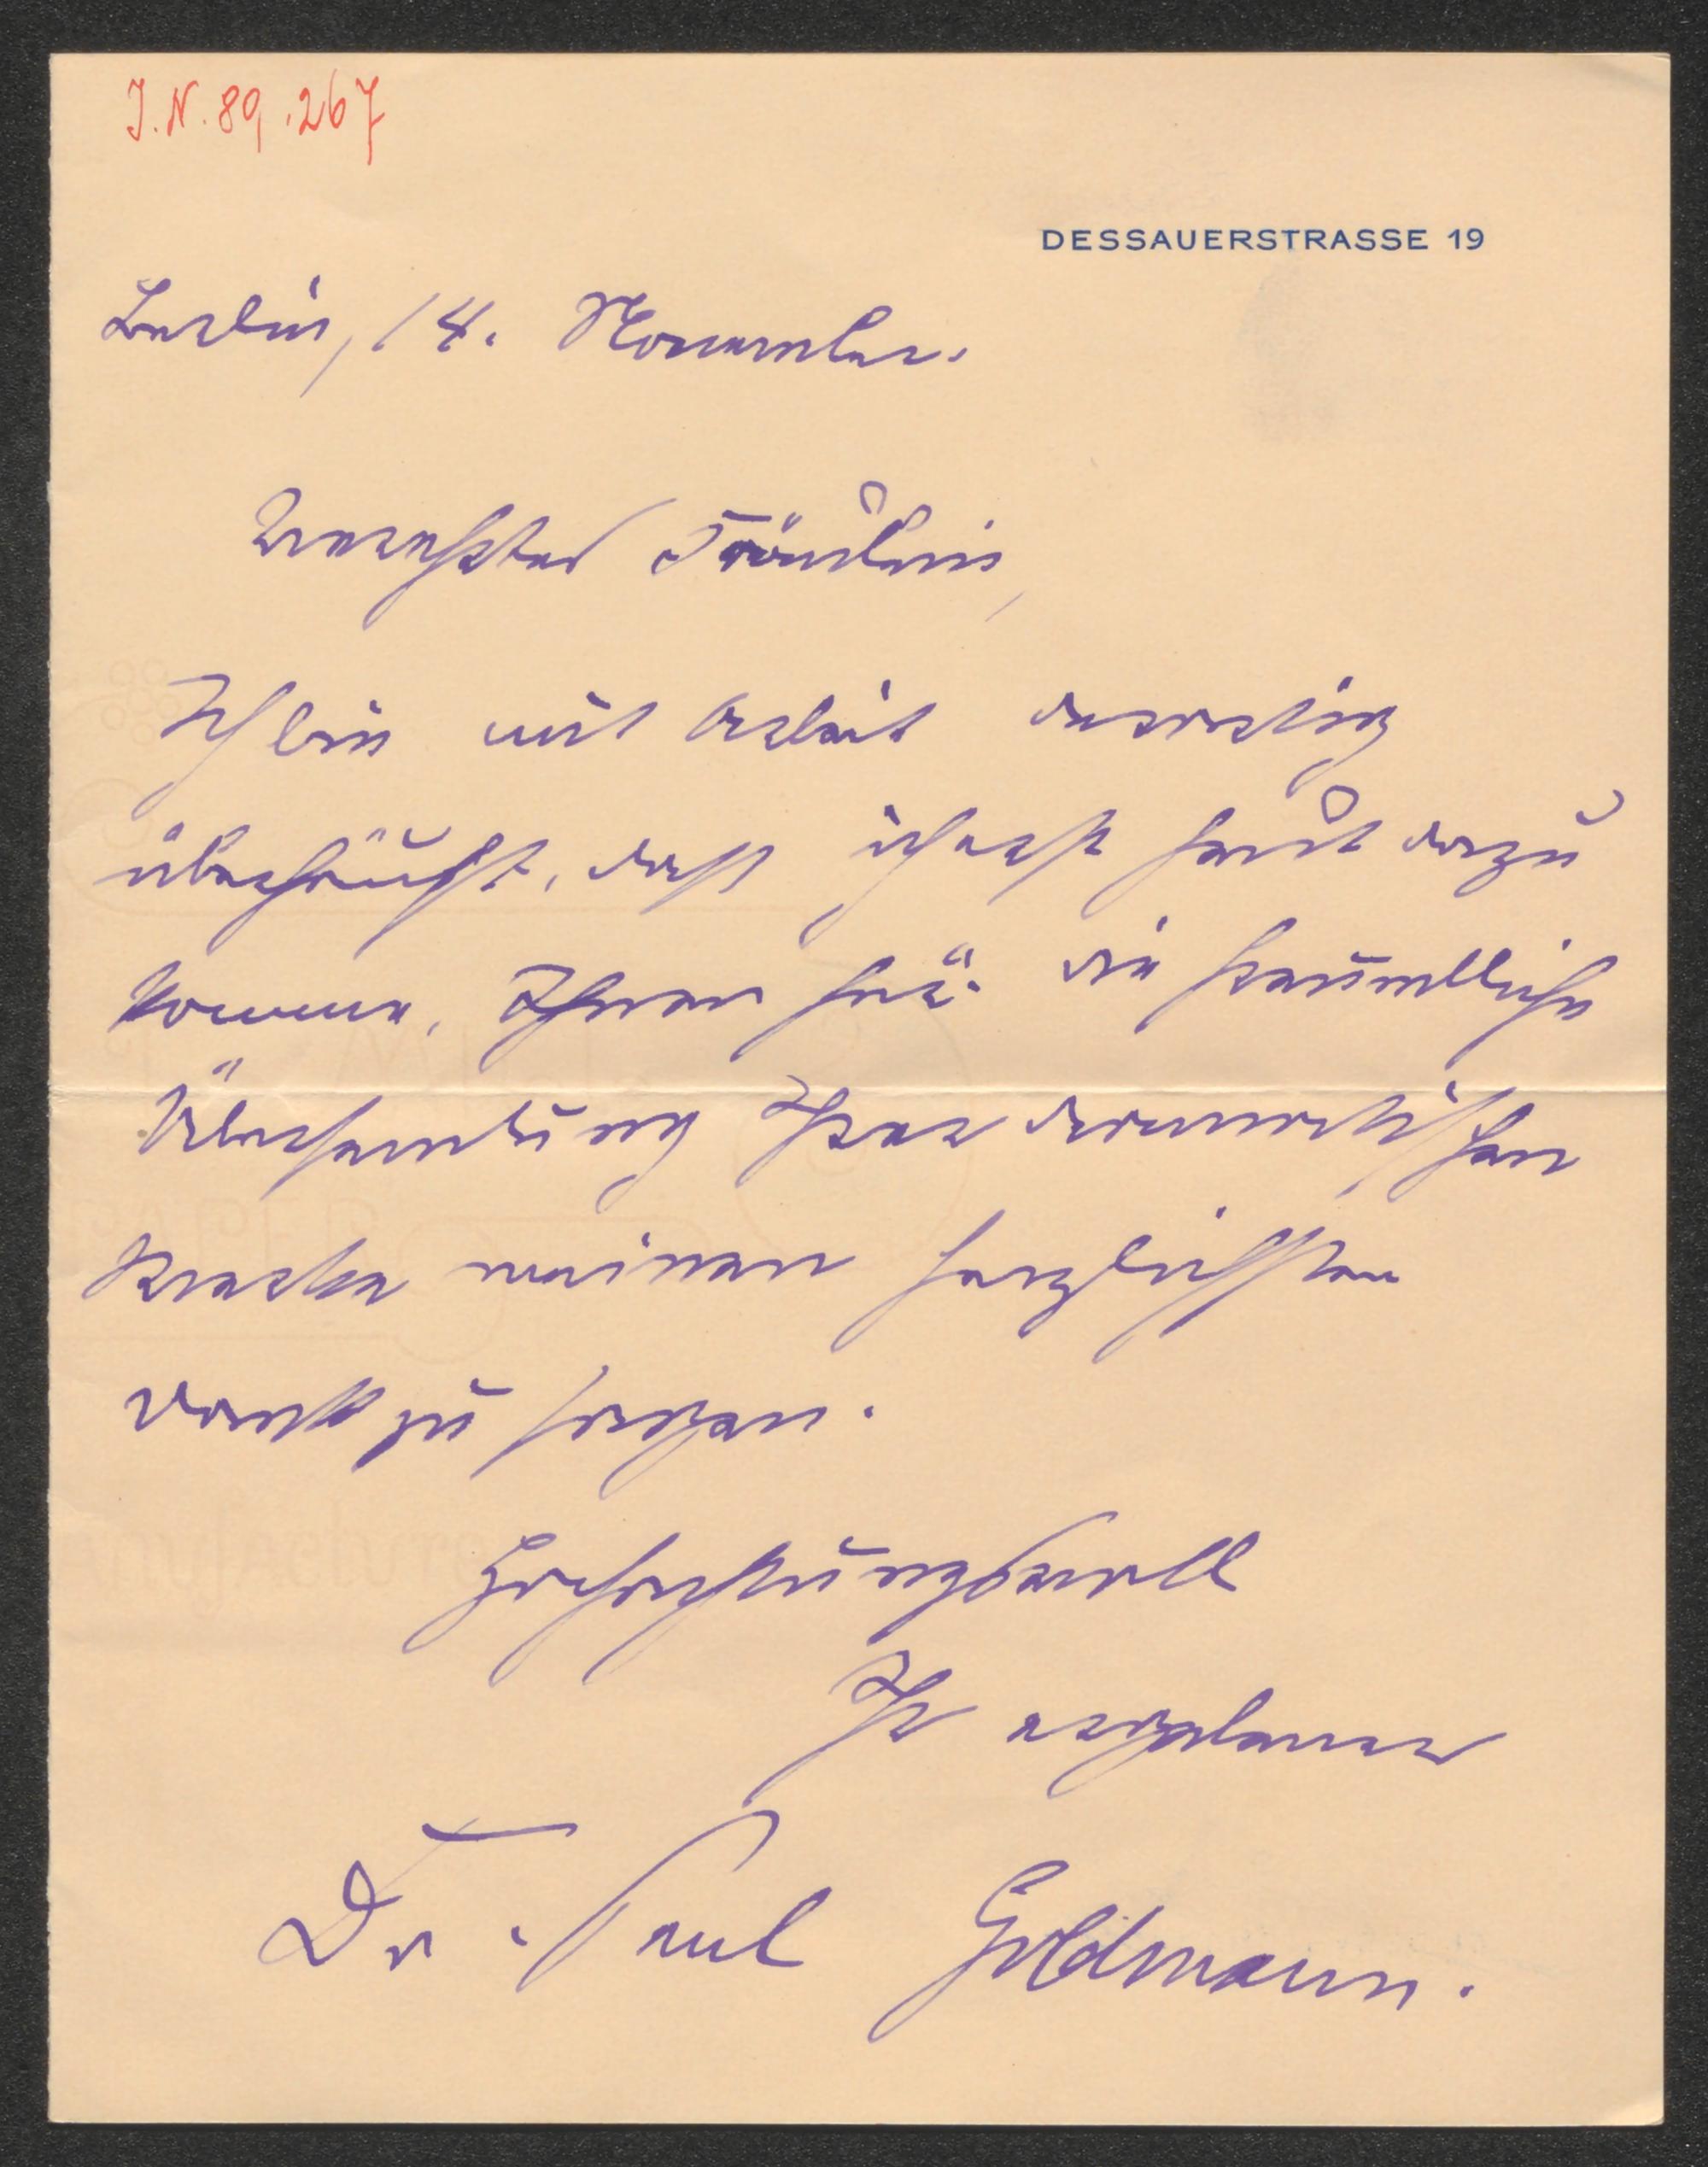 J.N. 89.267
DESSAUERSTRASSE 19
Berlin, 14. November.
Verehrtes Fräulein,
Ich bin mit Arbeit derartig
überhäuft, dass ich erst heut dazu
komme, Ihnen für die freundliche
Übersendung Ihrer dramatischen
Werke meinen herzlichsten
Dank zu sagen.
Hochachtungsvoll
Ihr ergebener
Dr. Paul Goldmann.